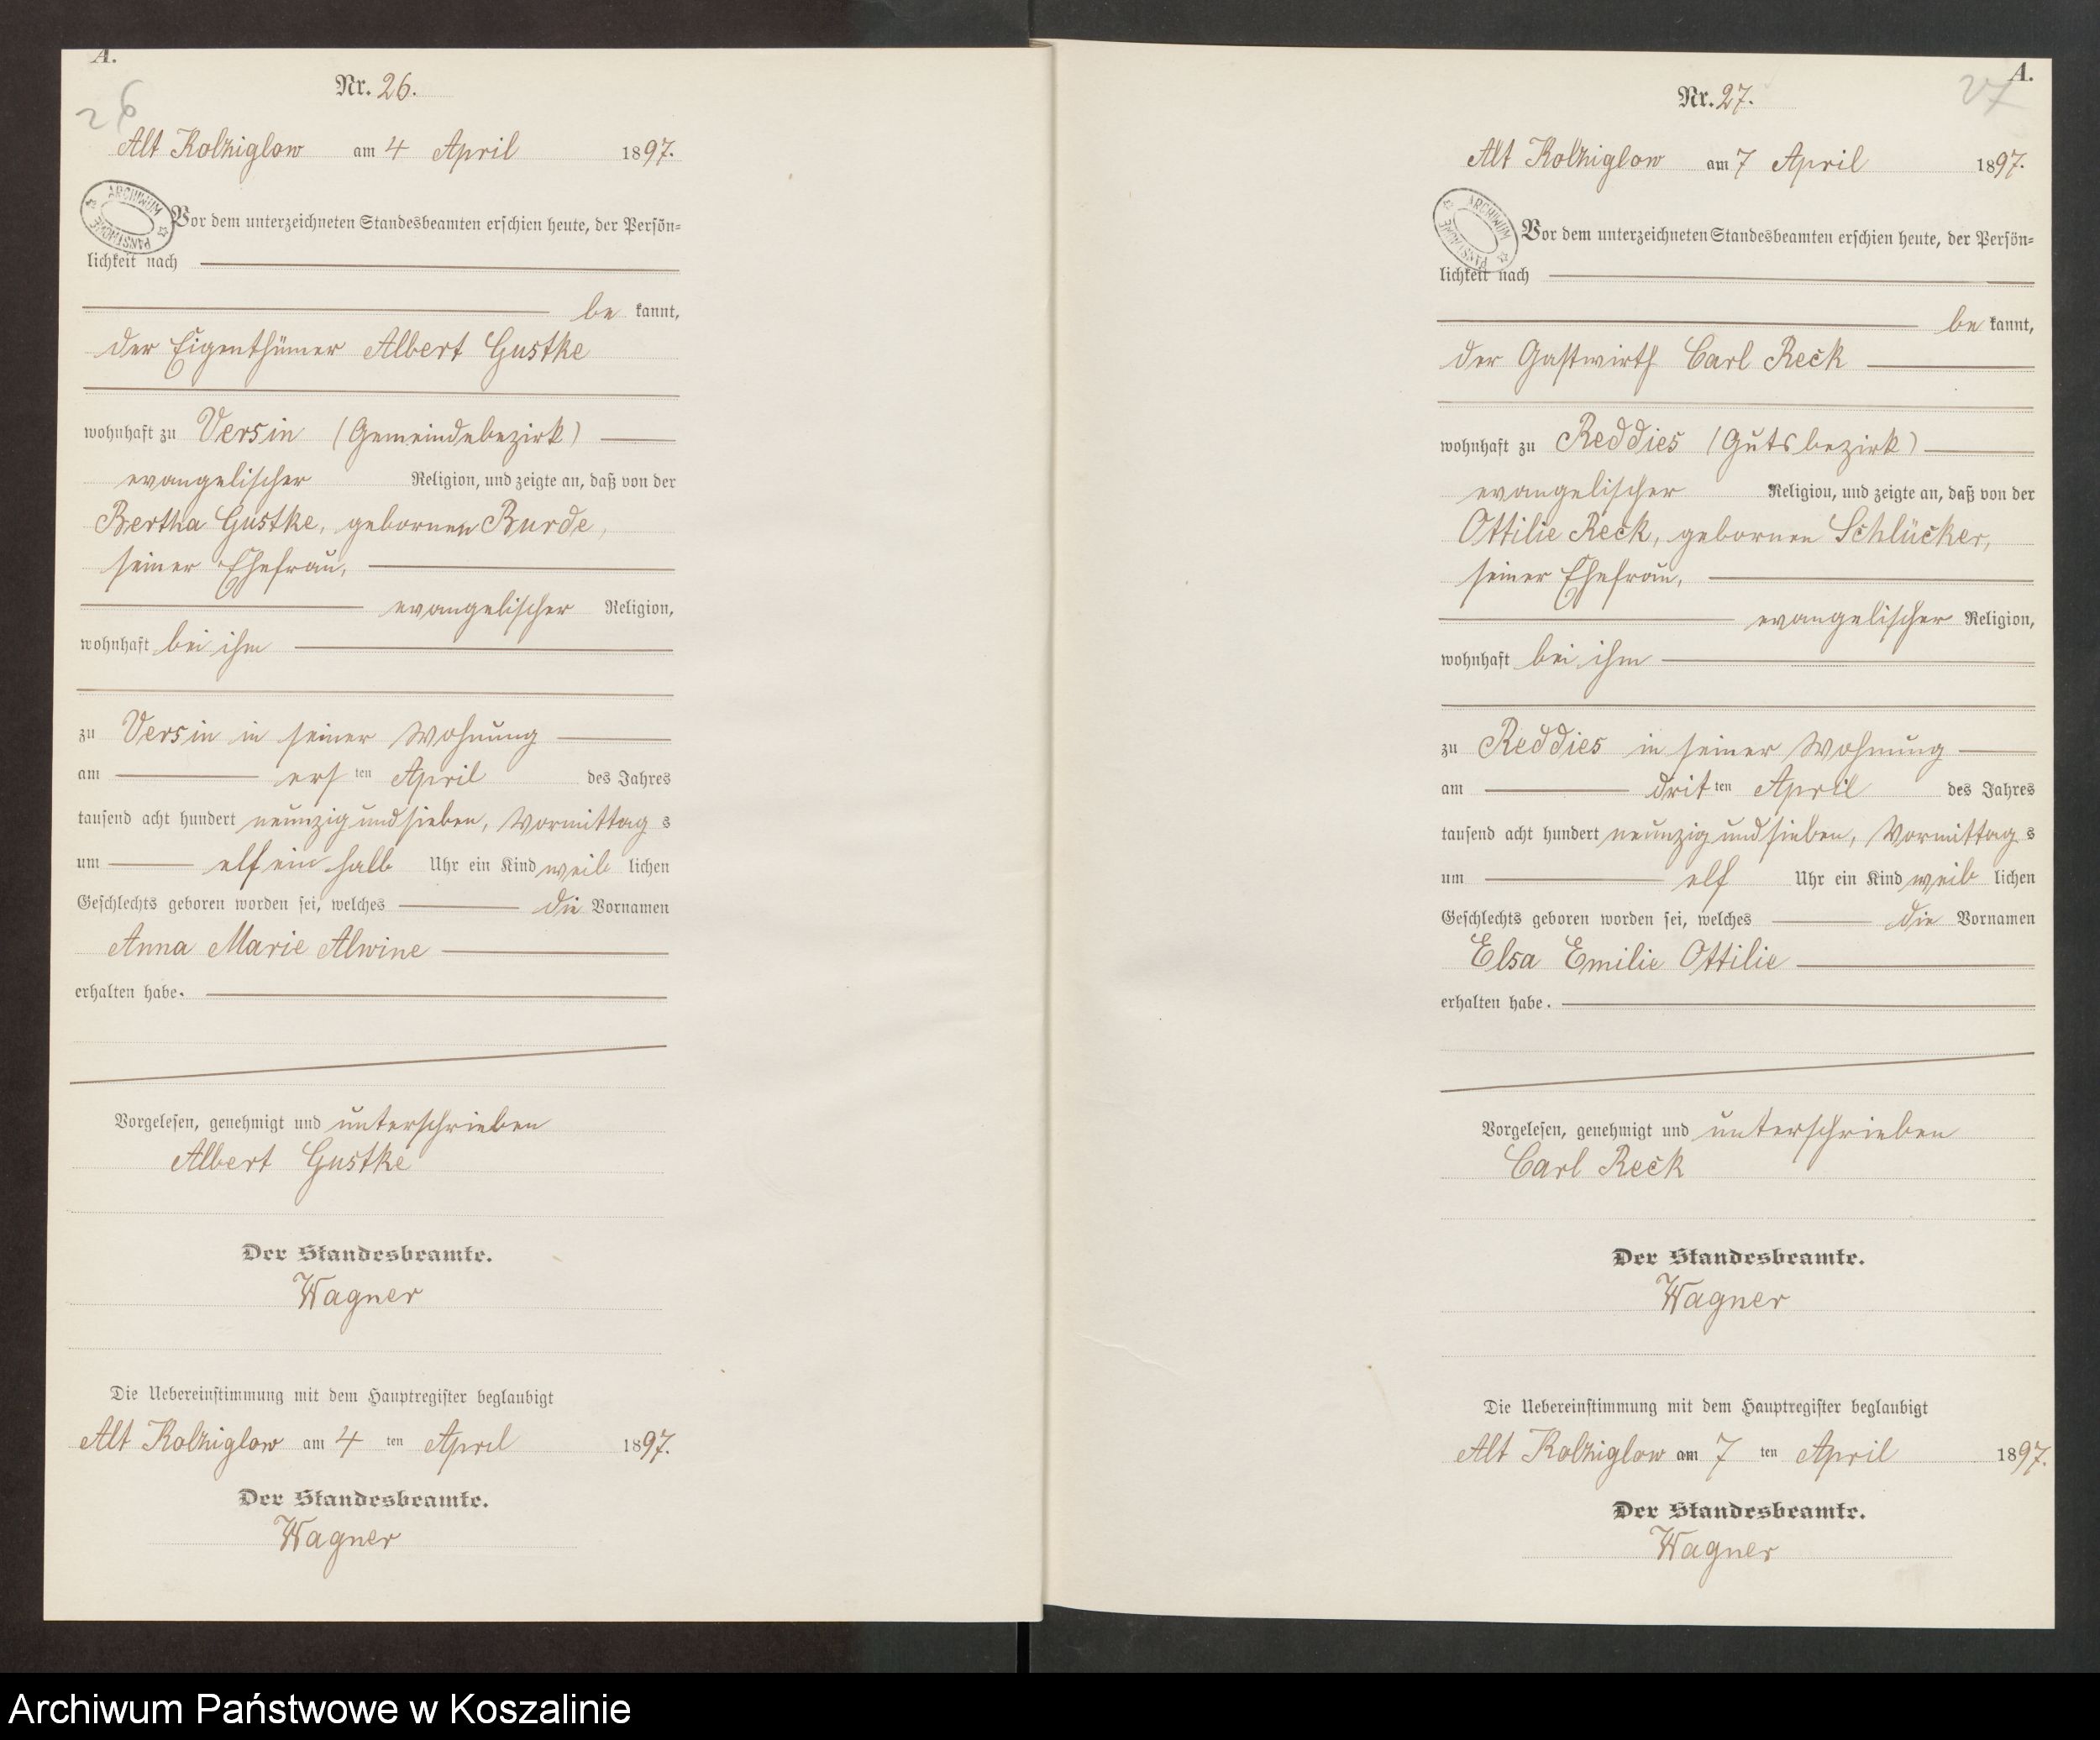 A.
Nr. 26.
26
Alt Kolziglow am 4 April 1897.
ARCHIWUM PAŃSTWOWE
Vor dem unterzeichneten Standesbeamten erschien heute, der Persön=
lichkeit nach
be kannt,
der Eigenthümer Albert Gustke
wohnhaft zu Versin (Gemeindebezirk)
evangelischer Religion, und zeigte an, daß von der
Bertha Gustke, gebornen Burde,
seiner Ehefrau,
evangelischer Religion,
wohnhaft bei ihm
zu Versin in seiner Wohnung
am ersten April des Jahres
tausend acht hundert neunzig und sieben, Vormittags
um elf ein halb Uhr ein Kind weiblichen
Geschlechts geboren worden sei, welches die Vornamen
Anna Marie Alwine
erhalten habe.
Vorgelesen, genehmigt und unterschrieben
Albert Gustke
Der Standesbeamte.
Wagner
Die Uebereinstimmung mit dem Hauptregister beglaubigt
Alt Kolziglow am 4 ten April 1897.
Der Standesbeamte.
Wagner
A.
Nr. 27.
27
Alt Kolziglow am 7 April 1897.
ARCHIWUM PAŃSTWOWE
Vor dem unterzeichneten Standesbeamten erschien heute, der Persön=
lichkeit nach
be kannt,
der Gastwirth Carl Reck
wohnhaft zu Reddies (Gutsbezirk)
evangelischer Religion, und zeigte an, daß von der
Ottilie Reck, gebornen Schlücker,
seiner Ehefrau,
evangelischer Religion,
wohnhaft bei ihm
zu Reddies in seiner Wohnung
am dritten April des Jahres
tausend acht hundert neunzig und sieben, Vormittags
um elf Uhr ein Kind weiblichen
Geschlechts geboren worden sei, welches die Vornamen
Elsa Emilie Ottilie
erhalten habe.
Vorgelesen, genehmigt und unterschrieben
Carl Reck
Der Standesbeamte.
Wagner
Die Uebereinstimmung mit dem Hauptregister beglaubigt
Alt Kolziglow am 7 ten April 1897.
Der Standesbeamte.
Wagner
Archiwum Państwowe w Koszalinie